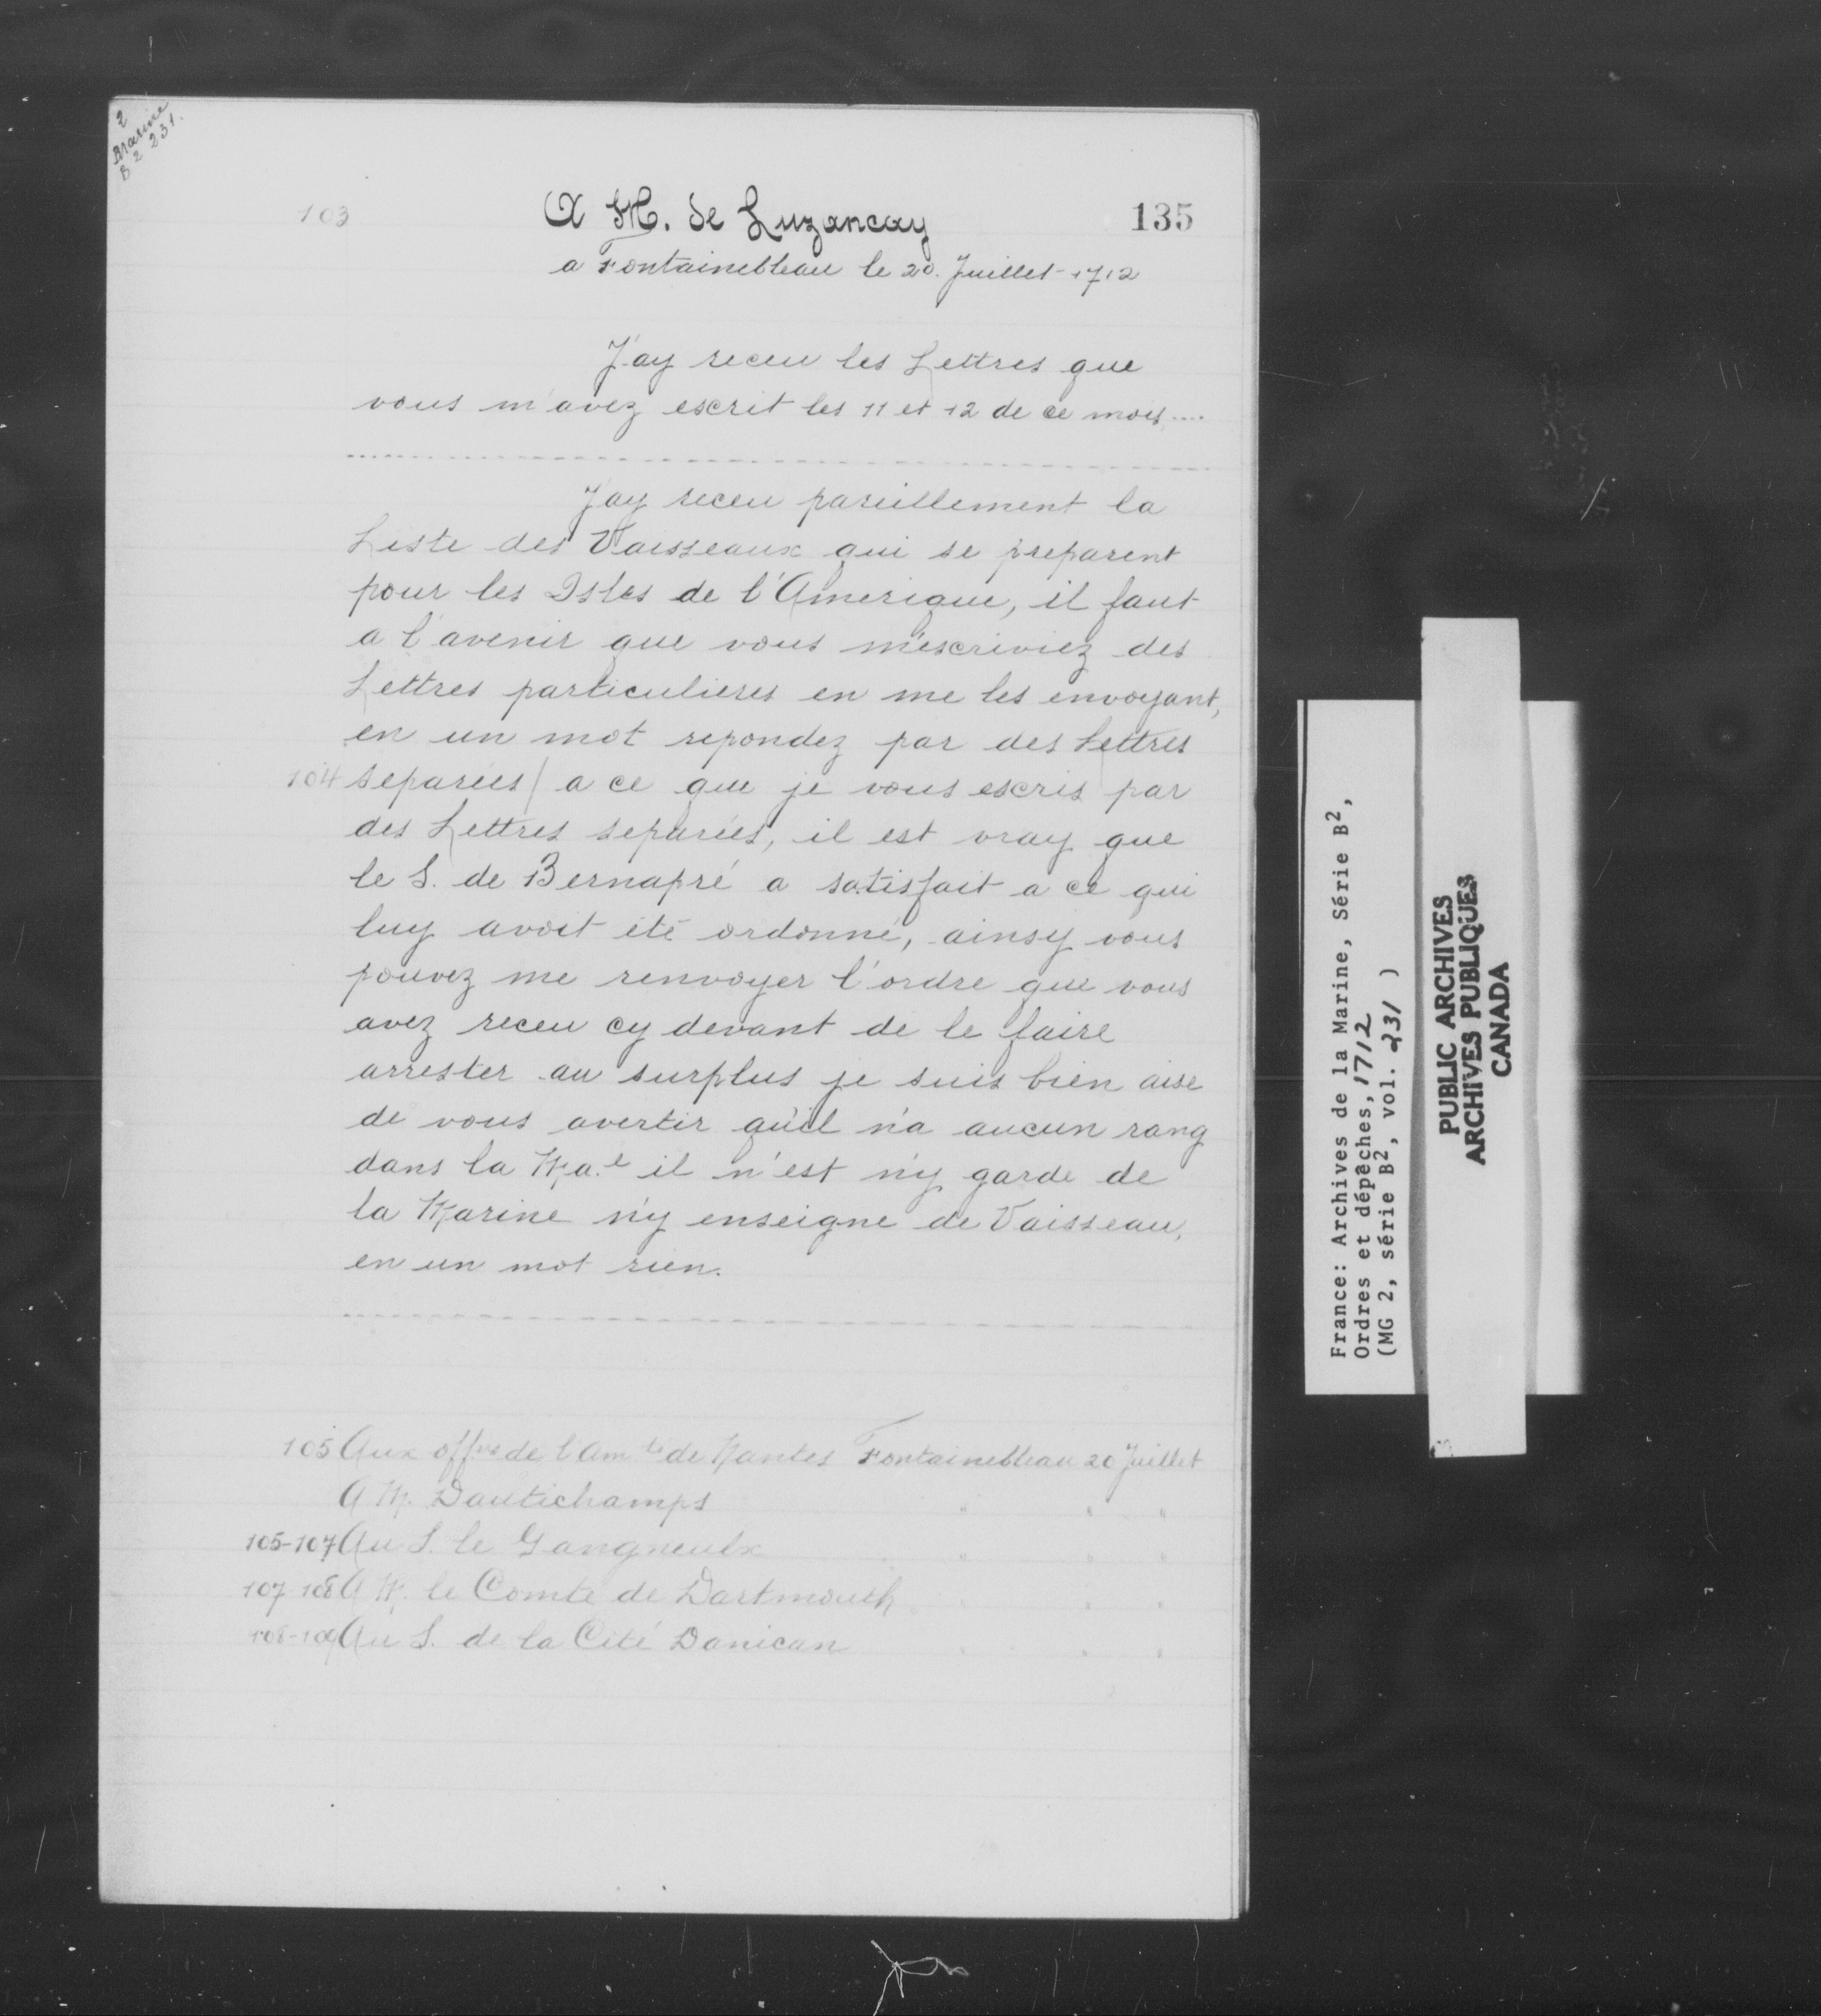 2
Marine
B 2 231.
103
135
A M. de Luzancay
a Fontainebleau le 20. Juillet 1712
J'ay receu les Lettres que
vous m'avez escrit les 11 et 12 de ce mois....
J'ay receu pareillement la
Liste des Vaisseaux qui se preparent
pour les Isles de l'Amerique, il faut
a l'avenir que vous m'escriviez des
Lettres particulieres en me les envoyant,
en un mot repondez par des Lettres
104 separées / a ce que je vous escris par
des Lettres separées, il est vray que
le S. de Bernapré a satisfait a ce qui
luy avoit été ordonné, ainsy vous
pouvez me renvoyer l'ordre que vous
avez receu cy devant de le faire
arrester au surplus je suis bien aise
de vous avertir qu'il n'a aucun rang
dans la Ma.e il n'est n'y garde de
la Marine n'y enseigne de Vaisseau,
en un mot rien.
105 Aux offres de l'Amté de Nantes Fontainebleau 20 Juillet
A M. Dautichamps " " "
105-107 Au S. le Gangneulx " " "
107 108 A M. le Comte de Dartmouth " " "
108-109 Au S. de la Cité Danican " " "
France: Archives de la Marine, Série B2,
Ordres et dépêches, 1712
(MG 2, série B2, vol. 231 )
PUBLIC ARCHIVES
ARCHIVES PUBLIQUES
CANADA